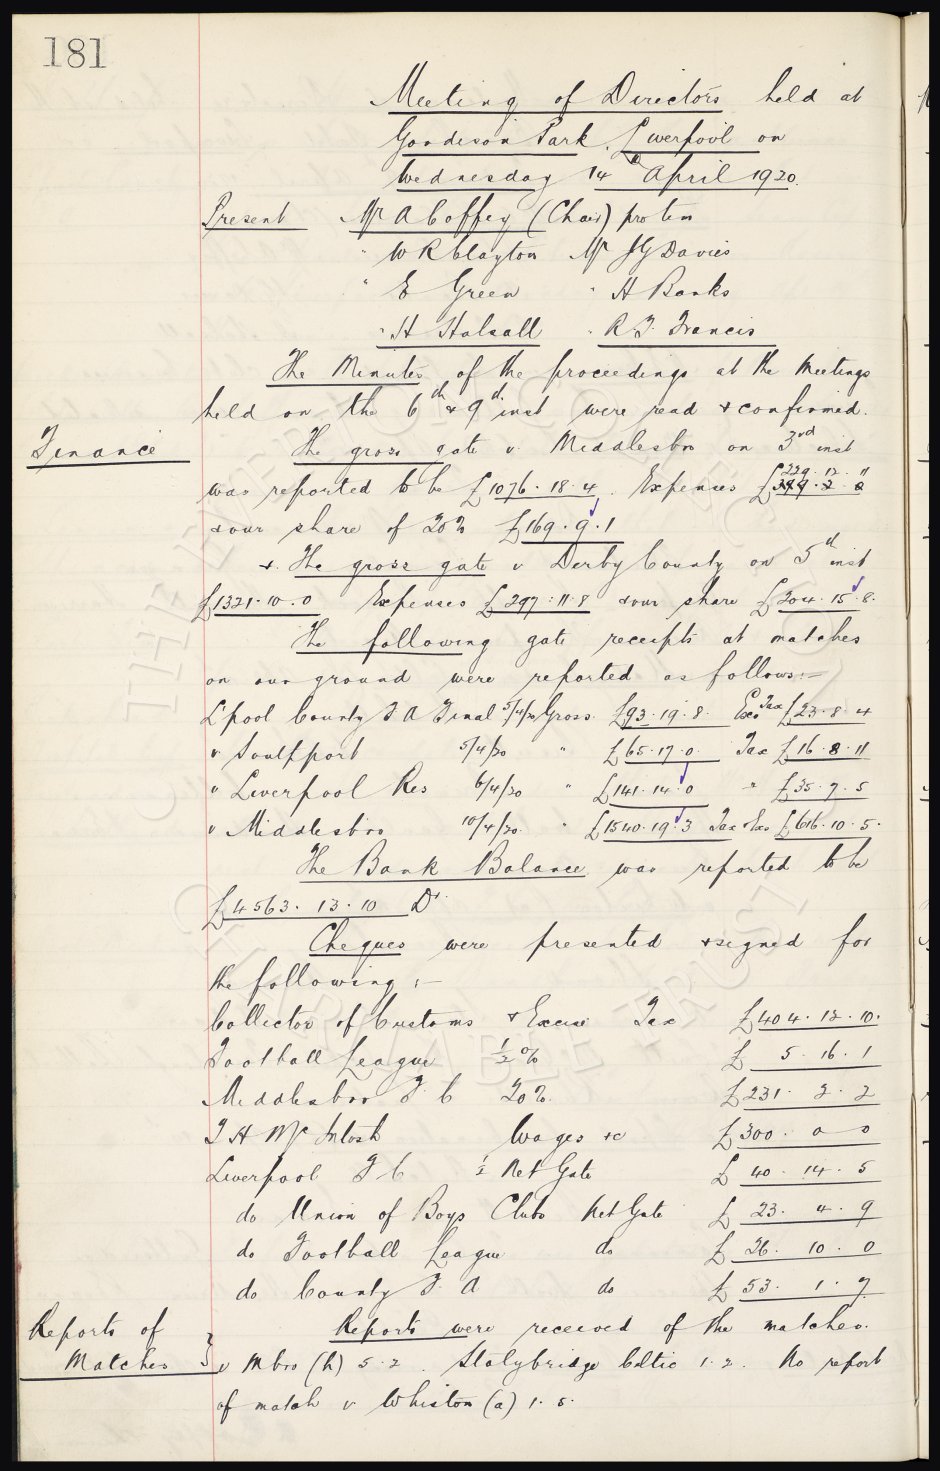 181
Meeting of Directors held at
Goodison Park, Liverpool on
Wednesday 14th April 1920.
Present Mr A Coffey (Chair) pro tem
" W R Clayton Mr J G Davies
" E Green " H Banks
" H Halsall " R F Francis
The Minutes of the proceedings at the Meetings
held on the 6th & 9th inst were read & confirmed.
Finance The gross gate v. Middlesbro on 3rd inst
was reported to be £1076.18.4. Expenses £229.12.11
& our share of 20% £169.9.1
& The gross gate v Derby County on 5th inst
£1321.10.0 Expenses £297.11.8 & our share £204.15.8.
The following gate receipts at matches
on our ground were reported as follows:-
L'pool County F A Final 5/4/20 Gross £93.19.8. Exs Tax £23.8.4
v Southport 5/4/20 " £65.17.0 Tax £16.8.11
" Liverpool Res 6/4/20 " £141.14.0 " £35.7.5
v Middlesbro 10/4/20. " £1540.19.3 Tax & Exs £616.10.5.
The Bank Balance was reported to be
£4563.13.10 Dr.
Cheques were presented & signed for
the following:-
Collector of Customs & Excise Tax £404.12.10.
Football League ½% £5.16.1
Middlesbro F C 20% £231.2.2
T H McIntosh Wages &c £300.0.0
Liverpool F C ½ Net Gate £40.14.5
do Union of Boys Clubs Net Gate £23.4.9
do Football League do £26.10.0
do County F. A do £53.1.7
Reports of Reports were received of the matches.
Matches } v Mbro (h) 5.2. Stalybridge Celtic 1.2. No report
of match v Whiston (a) 1.5.